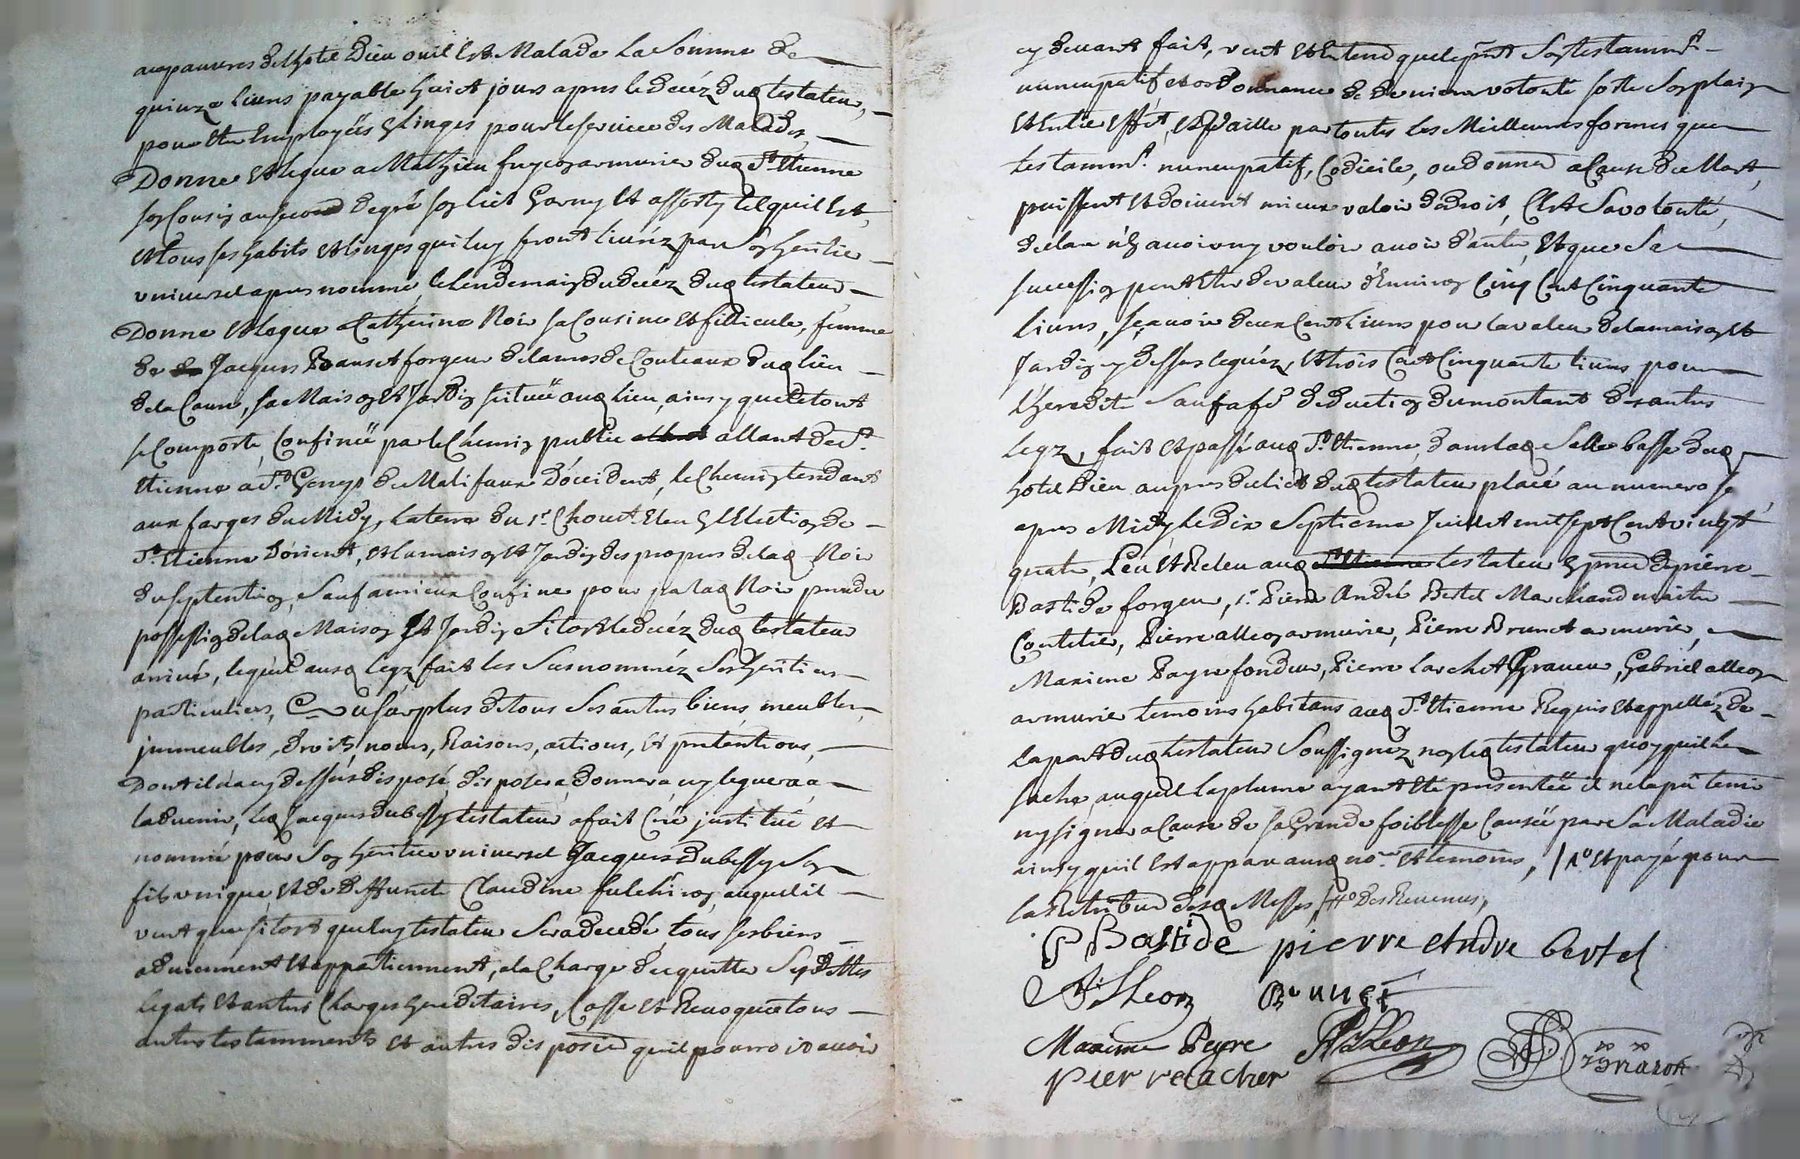 aux pauvres de l'hotel Dieu ou il est Malade la Somme de
quinze livres payable huict jours apres le decéz dud testateur,
pour etre Employées En linges pour le service des Malades,
Donne et legue a Mathieu armurier dud St. Etienne
son Cousin au second degré son lict Garny et assorty tel quil est,
et tous ses habits et linges qui luy seront livréz par Son heritier
universel apres nommé le lendemain du decéz dud testateur
Donne et legue a Catherine Noir sa Cousine et fillieule, femme
de Jacques forgeur de lames de Couteaux dud lieu
de la sa Maison et Jardin scitué aud lieu, ainsy que le tout
se Comporte, Confiné par le Chemin public allant de St.
Etienne à St. Genys de Malifaux D'occident, le Chemin tendant
aux forges du Midy, la terre du sr. Elu En l'Election de
St. Etienne D'orient, et la maison et Jardin des propres de lad Noir
du septentrion, Sauf a mieux Confiner pour par lad Noir prendre
possession de lad Maison et Jardin Sitost le decéz dud testateur
arrivé, lequel aux legz fait les Susnomméz Ses heritiers
particuliers, Et au surplus de tous Ses autres biens meubles,
immeubles, droits, noms, Raisons, actions, et pretentions,
Dont il n'a cy dessus disposé, disposera donnera ny leguera a
l'advenir, led Jacques Dubessy testateur a fait Créé justitué et
nommé pour Son heritier universel Jacques Dubessy Son
fils unique et de deffunct Claudine fulchiron, auquel il
veut que sitost que luy testateur Sera decedé tous ses biens
adviennent et appartiennent, a la Charge d'acquitter Ses Dettes
legats et autres Charges hereditaires, Casse et Revoque tous
autres testamments et autres dispositions quil pourroit avoir
cy devant fait, veut et Entend que le present Soit son testamment
nuncupatif et ordonnance de derniere volonté sorte Son plain
et Entier Effet, et quil vaille par toutes les Meilleures formes que
testamment. nuncupatif, Codicile, ou donnaon a Cause de Mort,
puissent et doivent mieux valoir de droit, C'est Sa volonté,
declare n'En avoir ny vouloir avoir d'autre, Et que Sa
succession peut Etre de valeur d'Environ Cinq Cent Cinquante
livres, sçavoir deux Cent livres pour la valeur de la maison et
Jardin cy dessus leguéz, et trois Cent Cinquante livres pour
l'heredité Sauf a fe. deduction du montant des autres
legz, fait et passé aud St. Etienne, dans la Salle basse dud
hotel Dieu aupres du lict dud testateur placé au numero
apres Midy le dix Septieme Juillet mil sept Cent vingt
quatre, Leu et Releu aud testateur En pnce. de pierre
Bastide forgeur, sr. Pierre André Bertel Marchand maitre
Coutelier, Pierre alleon armurier, Pierre Brunet armurier,
Maxime Payre fondeur, Pierre Larchet Graveur, Gabriel alleon
armurier temoins habitans aud St. Etienne Requis et appelléz de
la part dud testateur Soussignéz non led testateur quoyquil le
sache auquel la plume ayant Eté presentée il ne la pu tenir
ny signer a Cause de sa Grande foiblesse Causée par Sa Maladie
ainsy quil Est apparu aud nore. Et temoins, / 1o Et payé pour
la Retribuon desd Messes / 2o des Revenus,
P Bastide pierre Andre bertel
Alleon Brunet
Maxime Peyre G Alleon
Pierre lacher